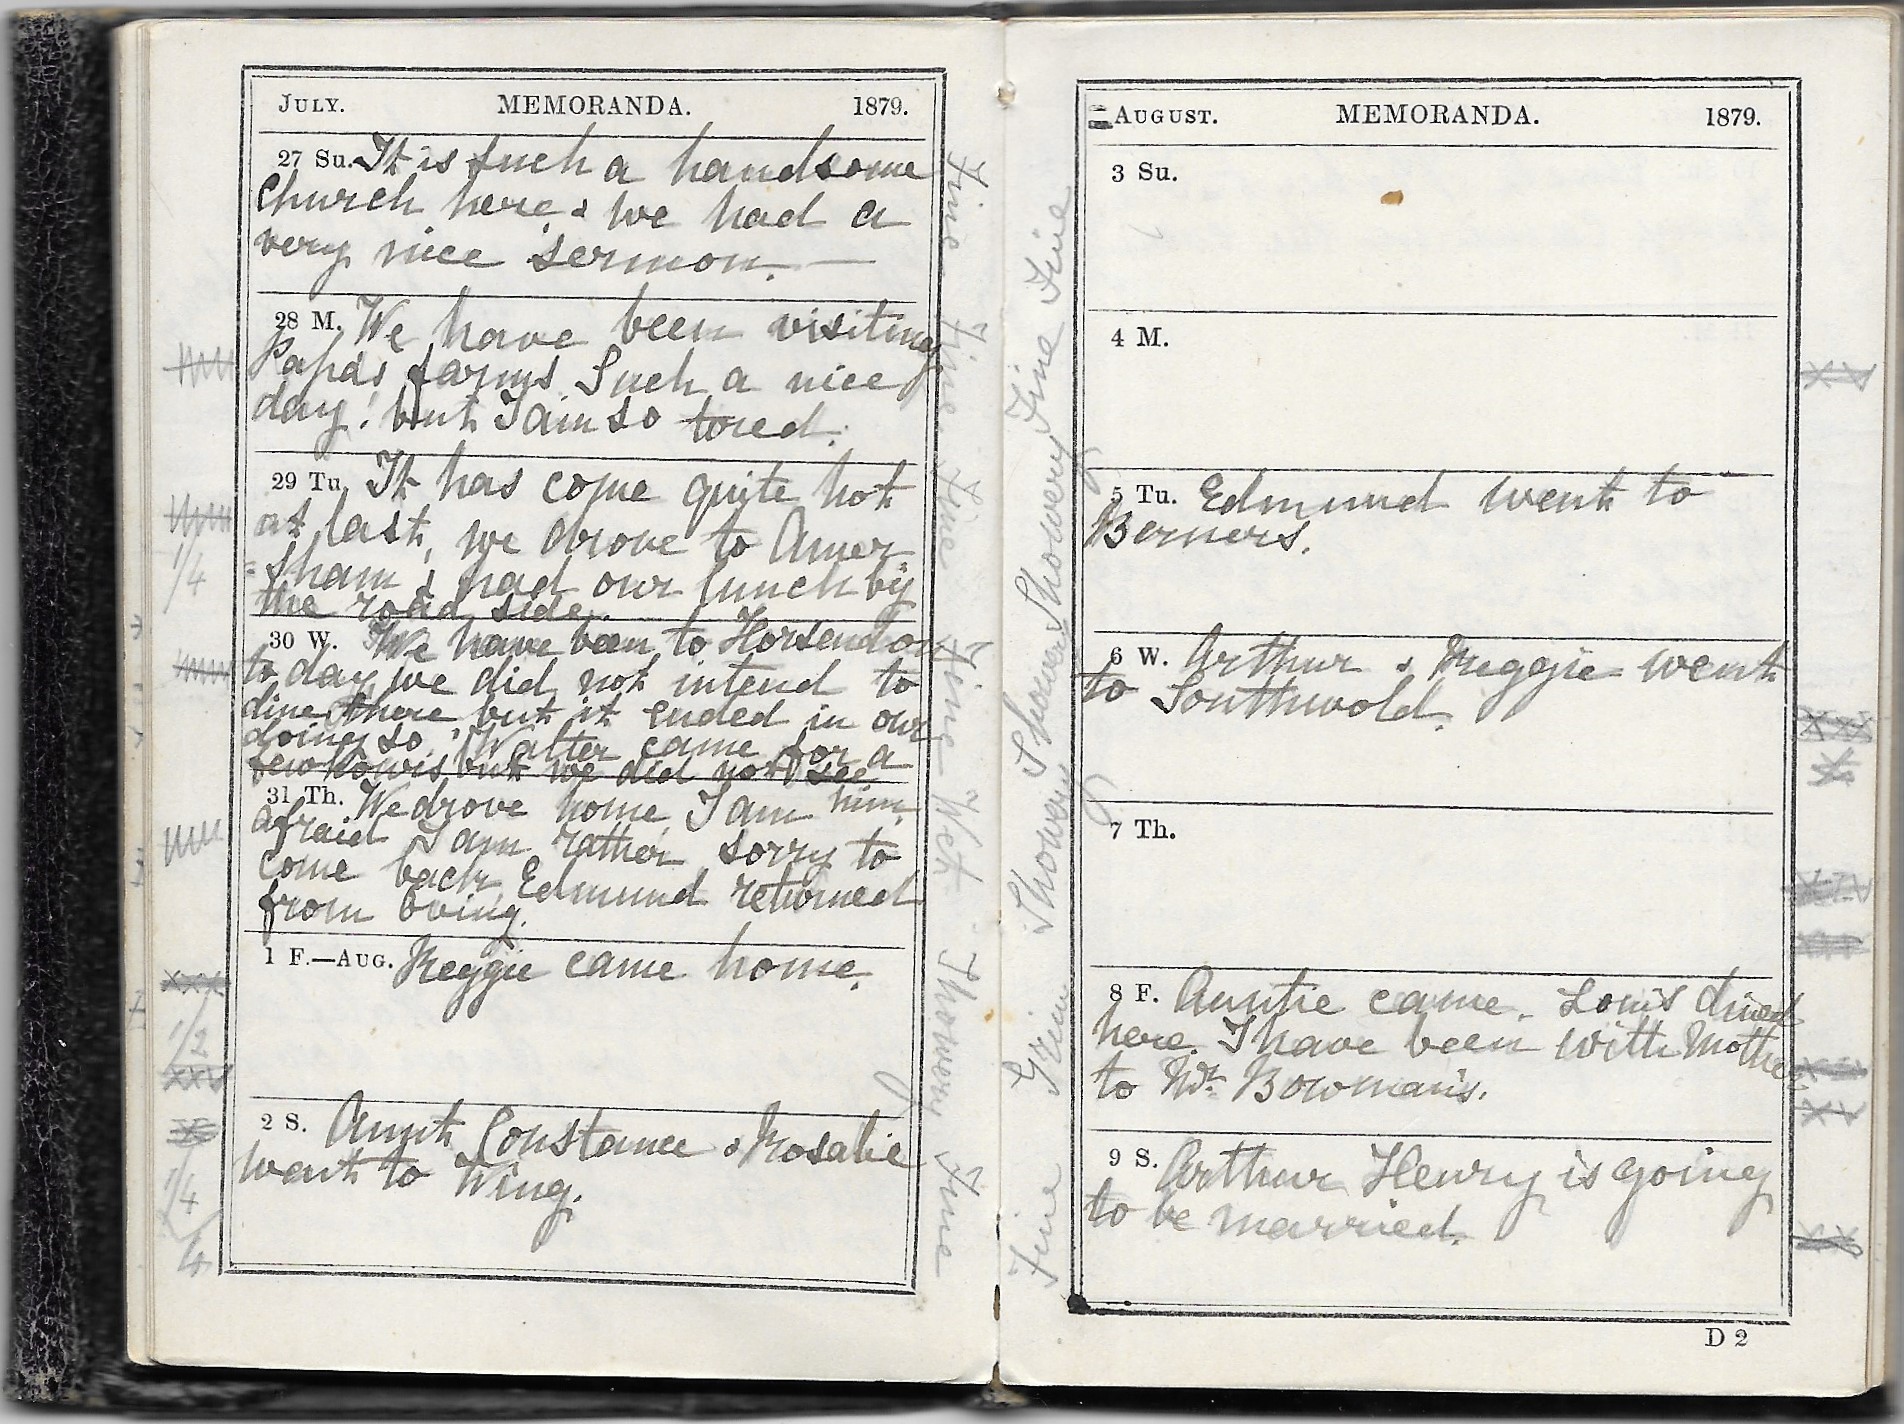 JULY. MEMORANDA. 1879.
27 Su. It is such a handsome
church here & we had a
very nice sermon. —
28 M. We have been visiting
Papa's farms Such a nice
day! but I am so tired.
29 Tu. It has come quite hot
at last, we drove to Amer
-sham & had our lunch by
the road side.
30 W. We have been to Horsendon
to day we did not intend to
dine there but it ended in our
doing so. Walter came for a
few hours, but we did not see
him.
31 Th. We drove home I am
afraid I am rather sorry to
come back Edmund returned
from Oving.
1 F.—AUG. Reggie came home.
1/4
1/2
2 S. Aunt Constance & Rosalie
went to Wing.
1/4
4
Fine Fine Fine Fine Wet Showery Fine
AUGUST. MEMORANDA. 1879.
3 Su.
4 M.
5 Tu. Edmund went to
Berners.
6 W. Arthur & Reggie went
to Southwold.
7 Th.
8 F. Auntie came. Louis dined
here. I have been with Mother
to Mr. Bowman's.
9 S. Arthur Henry is going
to be married.
Fine Showery Showery Showery Fine Fine
D 2